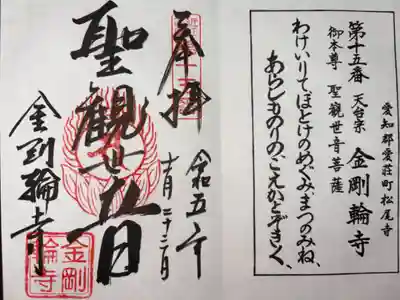 愛知郡愛荘町松尾寺
第十五番 天台宗 金剛輪寺
御本尊 聖観世音菩薩
わけいりてほとけのめぐみ、まつのみね、
あらしものりの、こえかとぞきく、
奉拝
令和五年
十一月二十二日
聖観世音
金剛輪寺
金剛
輪寺